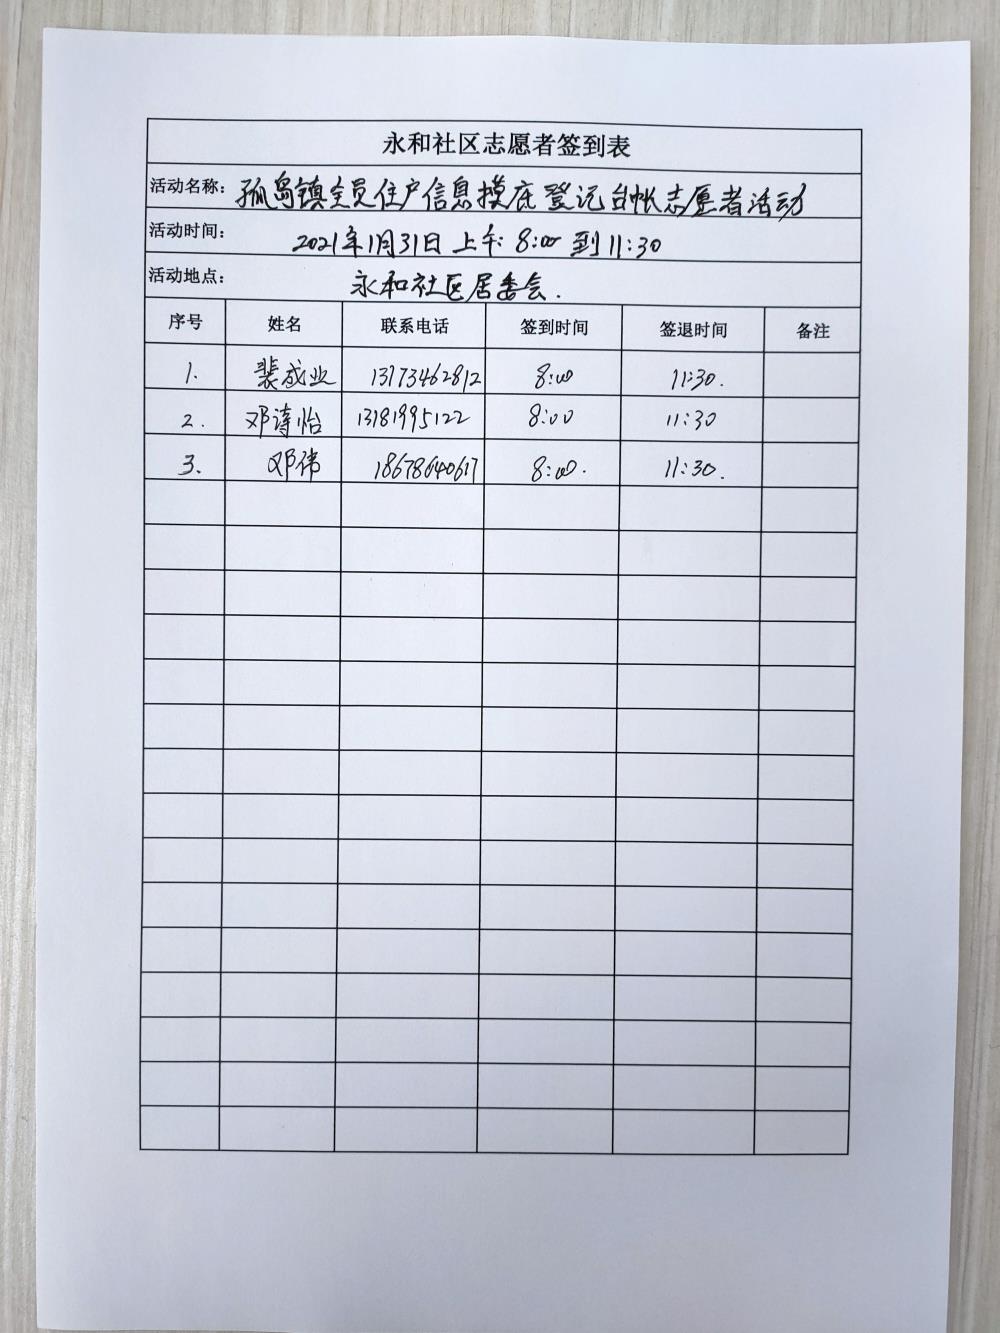 永和社区志愿者签到表
活动名称: 孤岛镇全员住户信息摸底登记台帐志愿者活动
活动时间: 2021年1月31日上午: 8:00到11:30
活动地点: 永和社区居委会.
序号 姓名 联系电话 签到时间 签退时间 备注
1. 裴成业 13173462812 8:00 11:30.
2. 邓涛怡 13181995122 8:00 11:30
3. 邓伟 18678640617 8:00. 11:30.